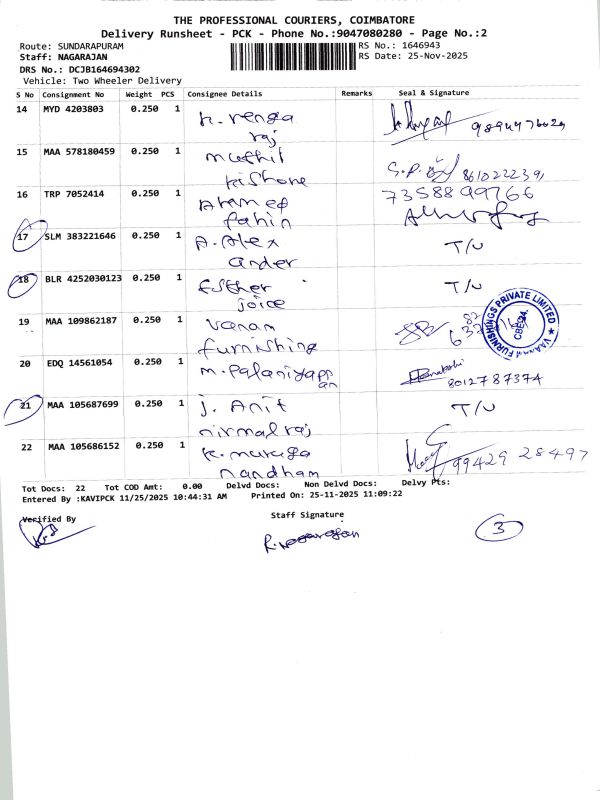 THE PROFESSIONAL COURIERS, COIMBATORE
Delivery Runsheet - PCK - Phone No.:9047080280 - Page No.:2
Route: SUNDARAPURAM RS No.: 1646943
Staff: NAGARAJAN RS Date: 25-Nov-2025
DRS No.: DCJB164694302
Vehicle: Two Wheeler Delivery
S No Consignment No Weight PCS Consignee Details Remarks Seal & Signature
14 MYD 4203803 0.250 1 K. renga
raj
15 MAA 578180459 0.250 1 muthil
kishore 8610222391
16 TRP 7052414 0.250 1 Ahamed 7358899766
fahin
17 SLM 383221646 0.250 1 A. Alex T/U
ander
18 BLR 4252030123 0.250 1 Esther T/U
joice
19 MAA 109862187 0.250 1 vanam
furnishing
VAANAM FURNISHINGS PRIVATE LIMITED
CBE-24.
20 EDQ 14561054 0.250 1 m. palaniyapp
an 8012787374
21 MAA 105687699 0.250 1 J. Anit T/U
nirmal raj
22 MAA 105686152 0.250 1 K. muruga 99429 28497
nandham
Tot Docs: 22 Tot COD Amt: 0.00 Delvd Docs: Non Delvd Docs: Delvy Pts:
Entered By :KAVIPCK 11/25/2025 10:44:31 AM Printed On: 25-11-2025 11:09:22
Verified By Staff Signature
3